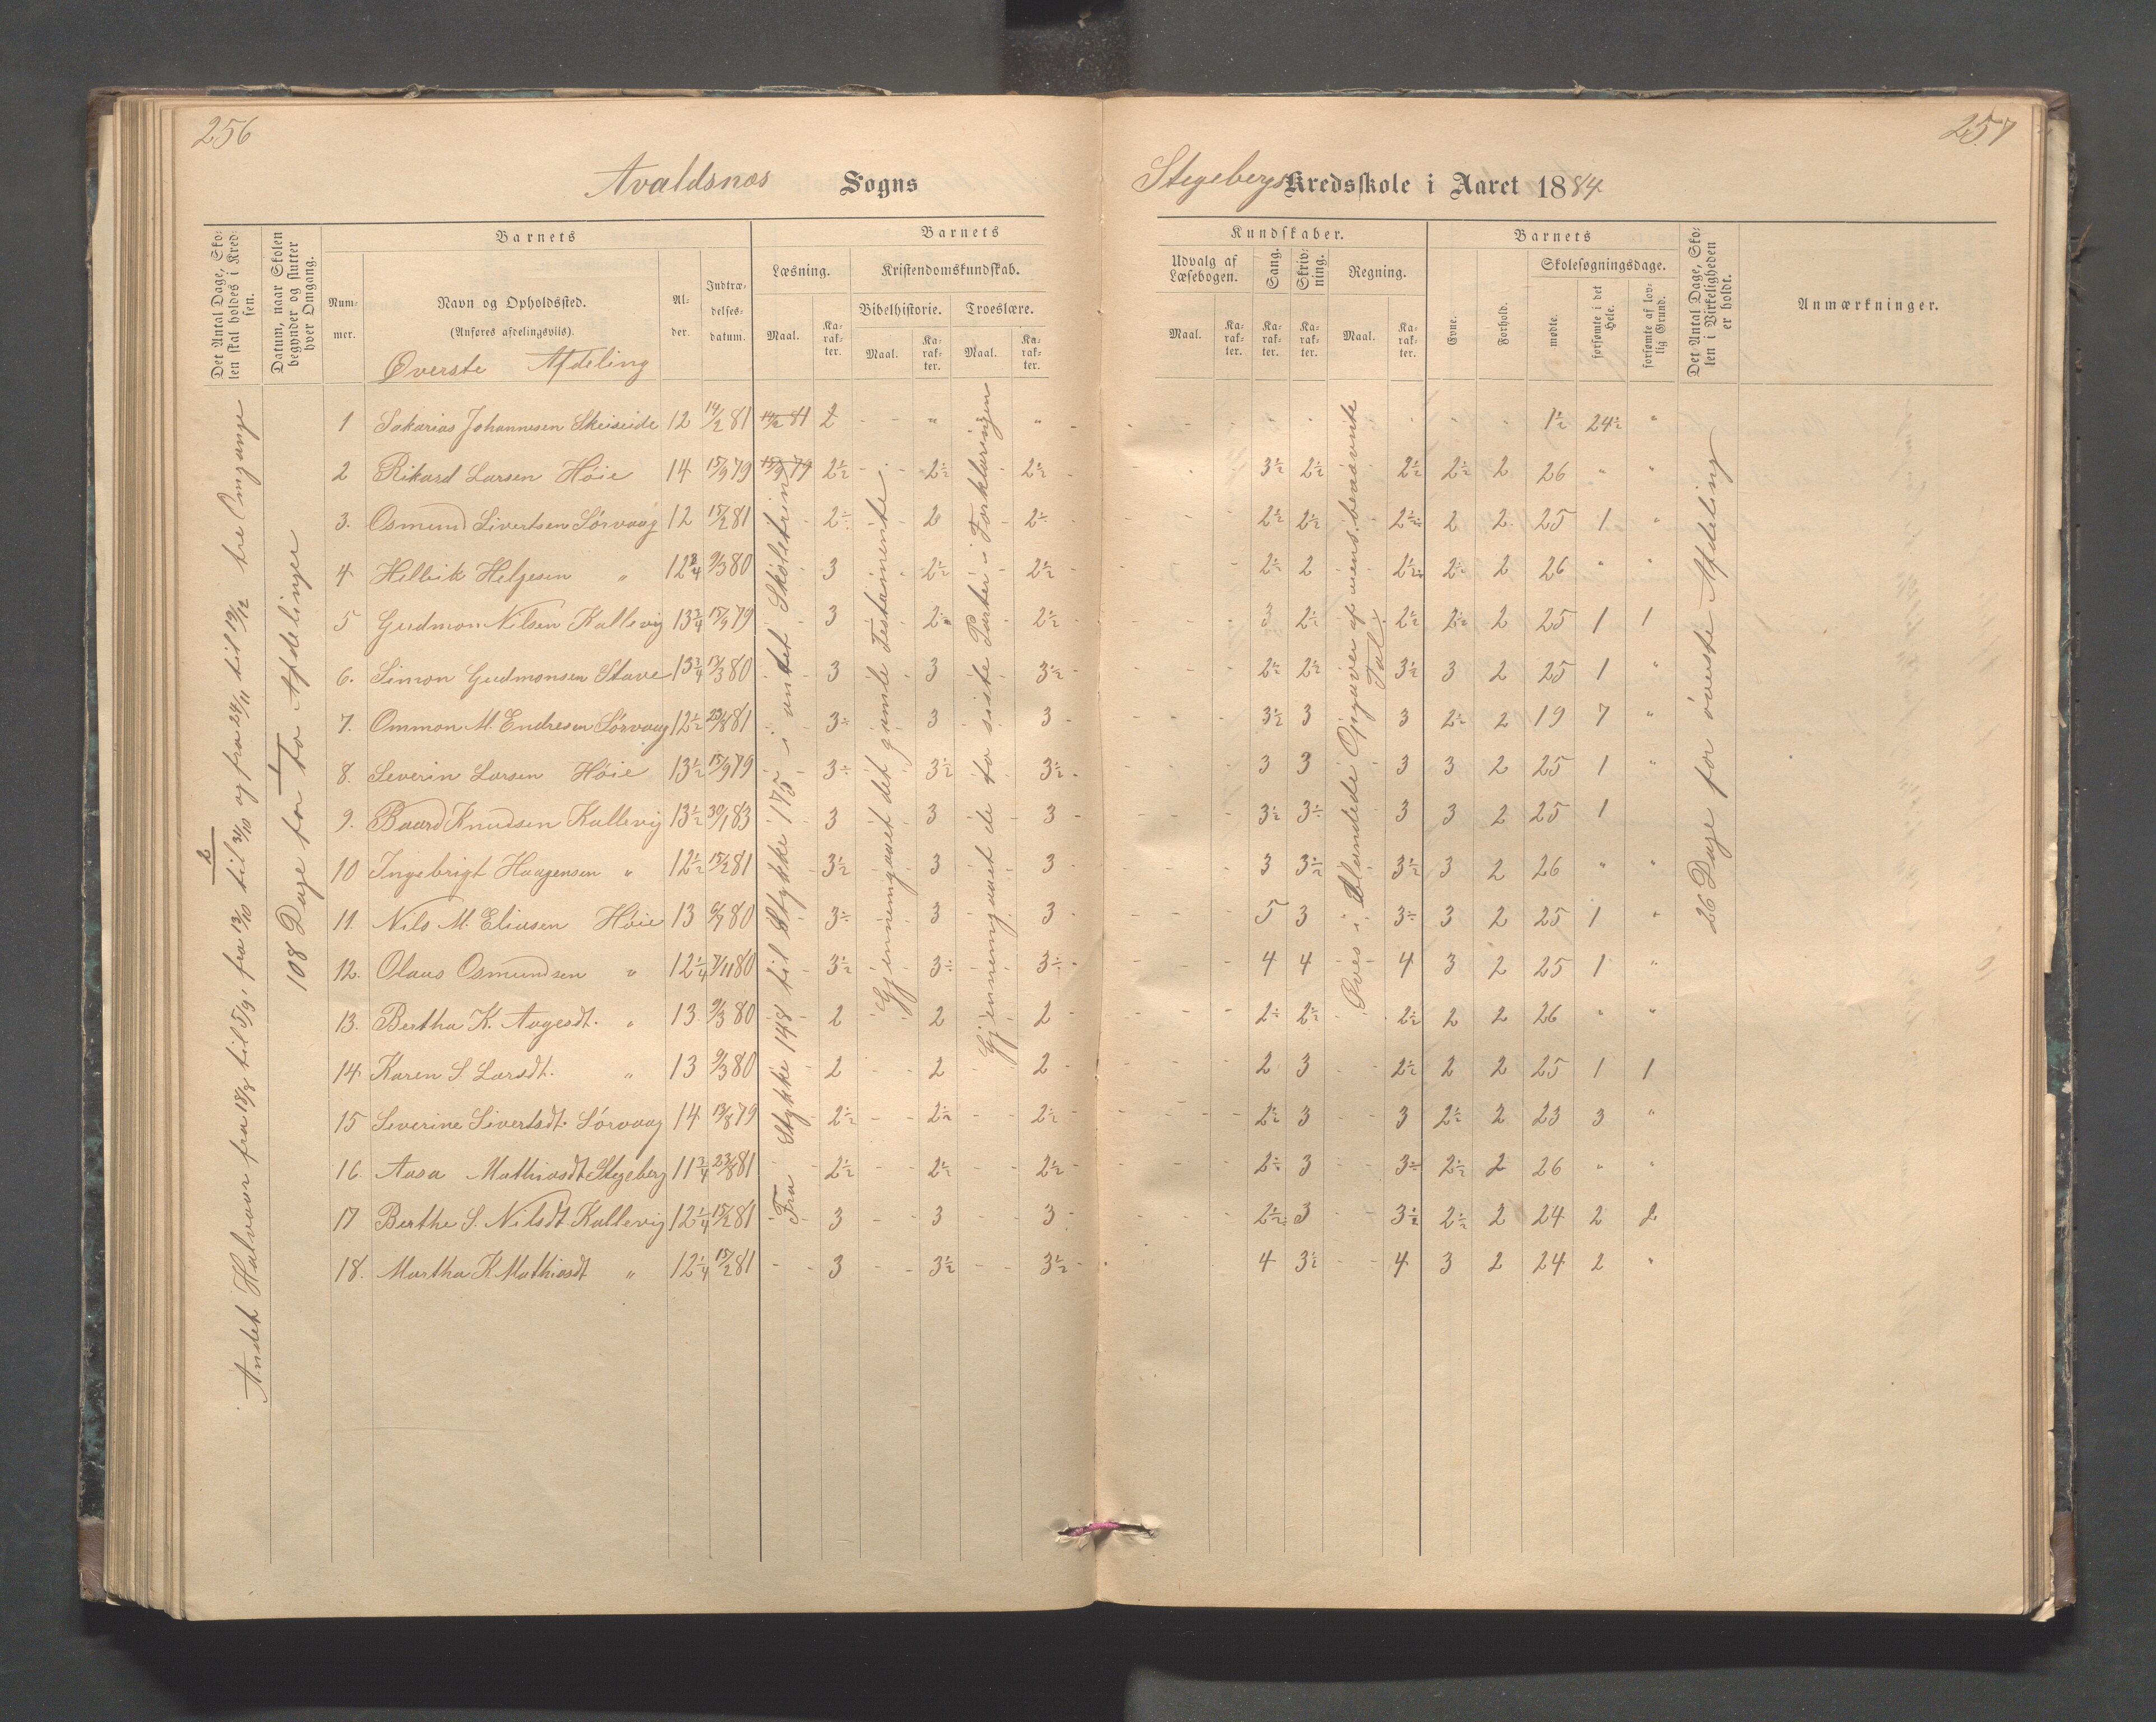 256
257
Avaldsnæs Sogns
Stegebergs Kredsskole i Aaret 1884.
Det Antal Dage, Skolen skal holdes i Kredsen.
Datum, naar Skolen begynder og slutter hver Omgang.
Barnets
Nummer.
Navn og Opholdssted.
(Anføres afdelingsviis).
Alder.
Indtrædelsesdatum.
Barnets
Læsning.
Maal.
Karakter.
Kristendomskundskab.
Bibelhistorie.
Maal.
Karakter.
Troeslære.
Maal.
Karakter.
Kundskaber.
Udvalg af Læsebogen.
Maal.
Karakter.
Sang.
Karakter.
Skrivning.
Karakter.
Regning.
Maal.
Karakter.
Barnets
Evne.
Forhold.
Skolesøgningsdage.
mødte.
forsømte i det Hele.
forsømte af lovlig Grund.
Det Antal Dage, Skolen i Virkeligheden er holdt.
Anmærkninger.
Øverste Afdeling
Andet Halvaar fra 18/8 til 5/9, fra 13/10 til 31/10 og fra 24/11 til 19/12 tre Omgange
108 Dage for to Afdelinger
Fra Stykke 148 til Stykke 175 i andet Skoletrin
Gjennemgaaet det gamle Testamente
Gjennemgaaet de to sidste Parter i Forklaringen
Øves i blandede Opgaver af uens. benævnte Tal.
26 Dage for øverste Afdeling
1 Sakarias Johannesen Skeiseide 12 14/2 81 14/2 81 2 " " 1½ 24½ "
2 Rikard Larsen Høie 14 15/9 79 15/9 79 2½ 2½ 2½ 3½ 2½ 2½ 2½ 2 26 " "
3. Osmund Sivertsen Sørvaag 12 15/2 81 2½ 2 2½ 2½ 2½ 2½ 2 2 25 1 "
4. Hellvik Helgesen " 12¾ 9/3 80 3 2½ 2½ 2½ 2 2½ 2½ 2 26 " "
5 Gudmon Nilsen Kallevig 13¾ 15/9 79 3 2½ 2½ 3 2½ 2½ 2½ 2 25 1 1
6. Simon Gudmonsen Stave 13¾ 13/3 80 3 3 3½ 2½ 2½ 3½ 3 2 25 1 "
7. Ommon M. Endresen Sørvaag 12½ 23/8 81 3½ 3 3 3½ 3 3 2½ 2 19 7 "
8. Severin Larsen Høie 13½ 15/9 79 3½ 3½ 3½ 3 3 3 3 2 25 1 "
9. Baard Knudsen Kallevig 13½ 30/1 83 3 3 3 3½ 3½ 3 3 2 25 1
10 Ingebrigt Haagensen " 12½ 15/2 81 3½ 3 3 3 3½ 3½ 3 2 26 " "
11. Nils M. Eliasen Høie 13 6/9 80 3½ 3 3 5 3 3½ 3 2 25 1 "
12. Olaus Osmundsen " 12¼ 7/11 80 3½ 3½ 3½ 4 4 4 3 2 25 1 "
13. Bertha K. Aagesdt. " 13 9/3 80 2 2 2 2½ 2½ 2½ 2 2 26 " "
14 Karen S. Larsdt. " 13 9/3 80 2 2 2 2 3 2½ 2 2 25 1 1
15 Severine Sivertsdt. Sørvaag 14 13/8 79 2½ 2½ 2½ 2½ 3 3 2½ 2 23 3 "
16. Aasa Mathiasdt. Stegeberg 11¾ 23/8 81 2½ 2½ 2½ 2½ 3 3½ 2½ 2 26 " "
17 Berthe S. Nilsdt. Kallevig 12¼ 15/2 81 3 3 3 2½ 3 3½ 2½ 2 24 2 2
18. Martha K. Mathiasdt " 12¼ 15/2 81 3 3½ 3½ 4 3½ 4 3 2 24 2 "